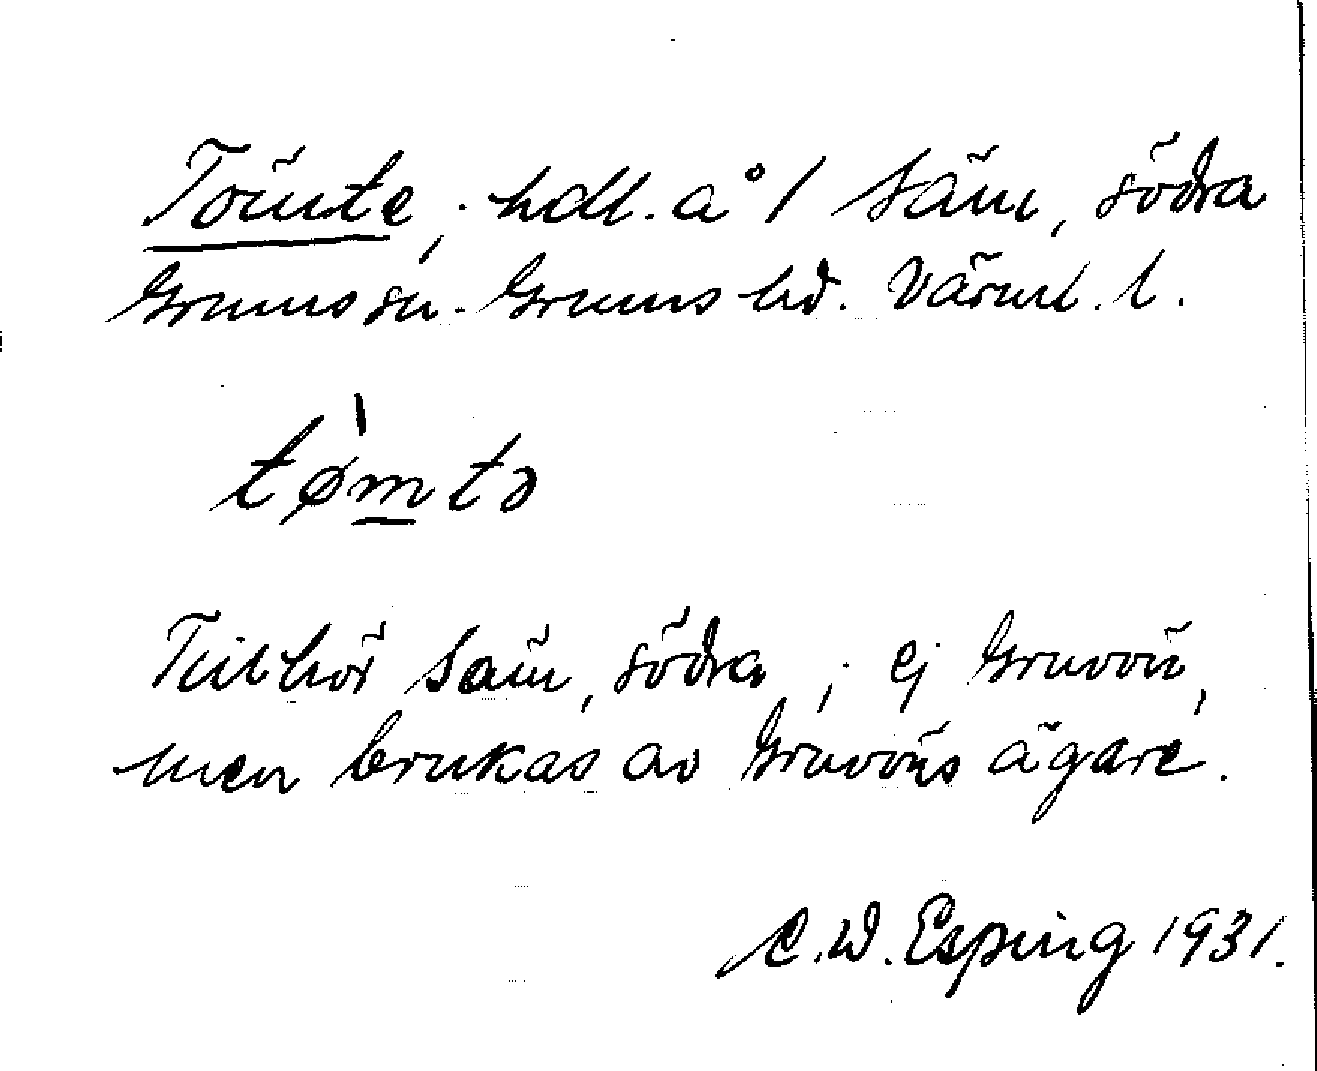 Tömte, hdl. å 1 Säm, södra
Grums sn. Grums hd. Värml. l.
tø̀mtə
Tillhör Säm, södra, ej Gruvön,
men brukas av Gruvöns ägare.
C.W. Esping 1931.